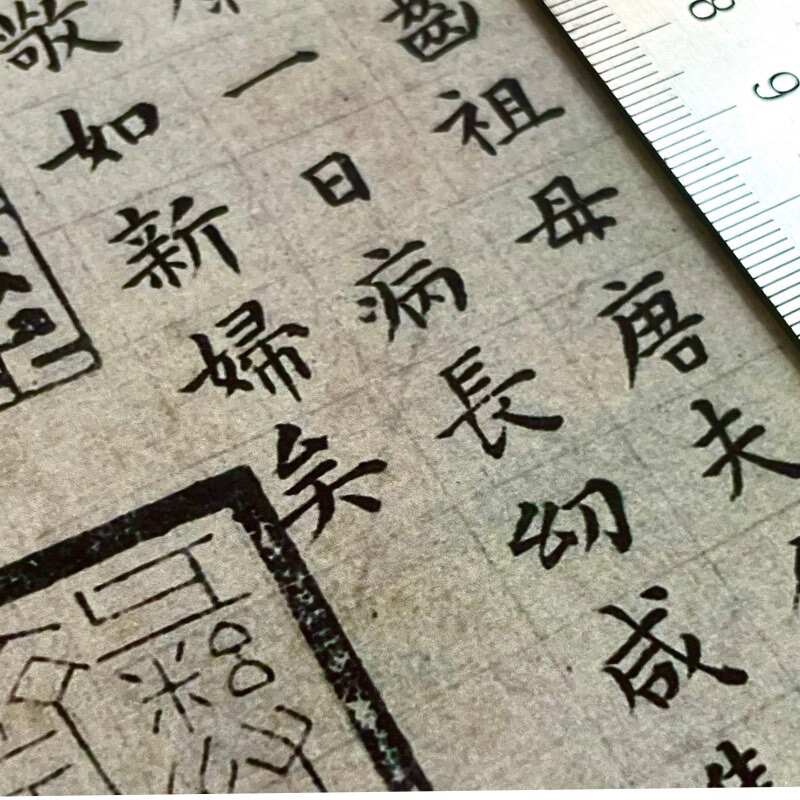 齒祖母唐夫
一日病長幼咸
敬如新婦矣
8
9